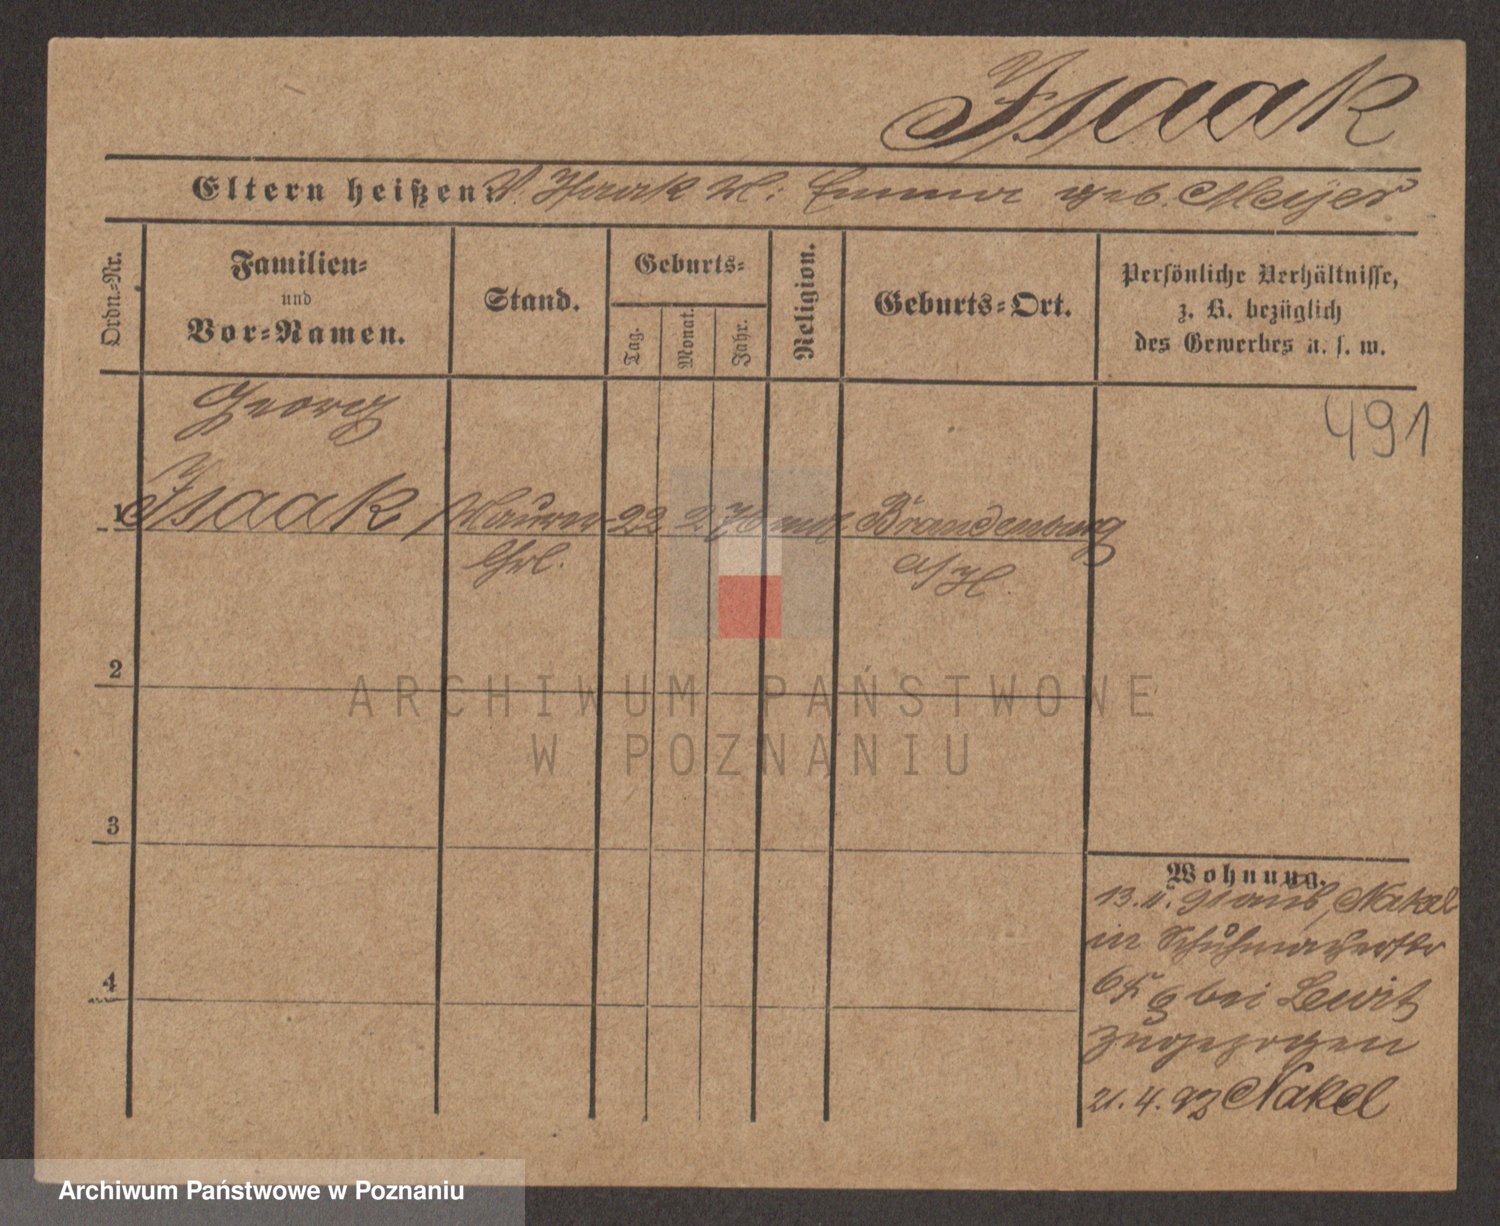 Isaak
Eltern heißen: V. Isaak M: Emma geb. Meyer
Ordn.-Nr.
Familien-
und
Vor-Namen.
Stand.
Geburts-
Tag.
Monat.
Jahr.
Religion.
Geburts-Ort.
Persönliche Verhältnisse,
z. B. bezüglich
des Gewerbes u. s. w.
491
Georg
1 Isaak Maurer 22 2. 76 Brandenburg
a/H.
2
3
4
Wohnung.
13. 91 aus Nakel
in Schuhmacherstr
bei Lewit
zugezogen
21. 4. 92 Nakel
ARCHIWUM PAŃSTWOWE
W POZNANIU
Archiwum Państwowe w Poznaniu